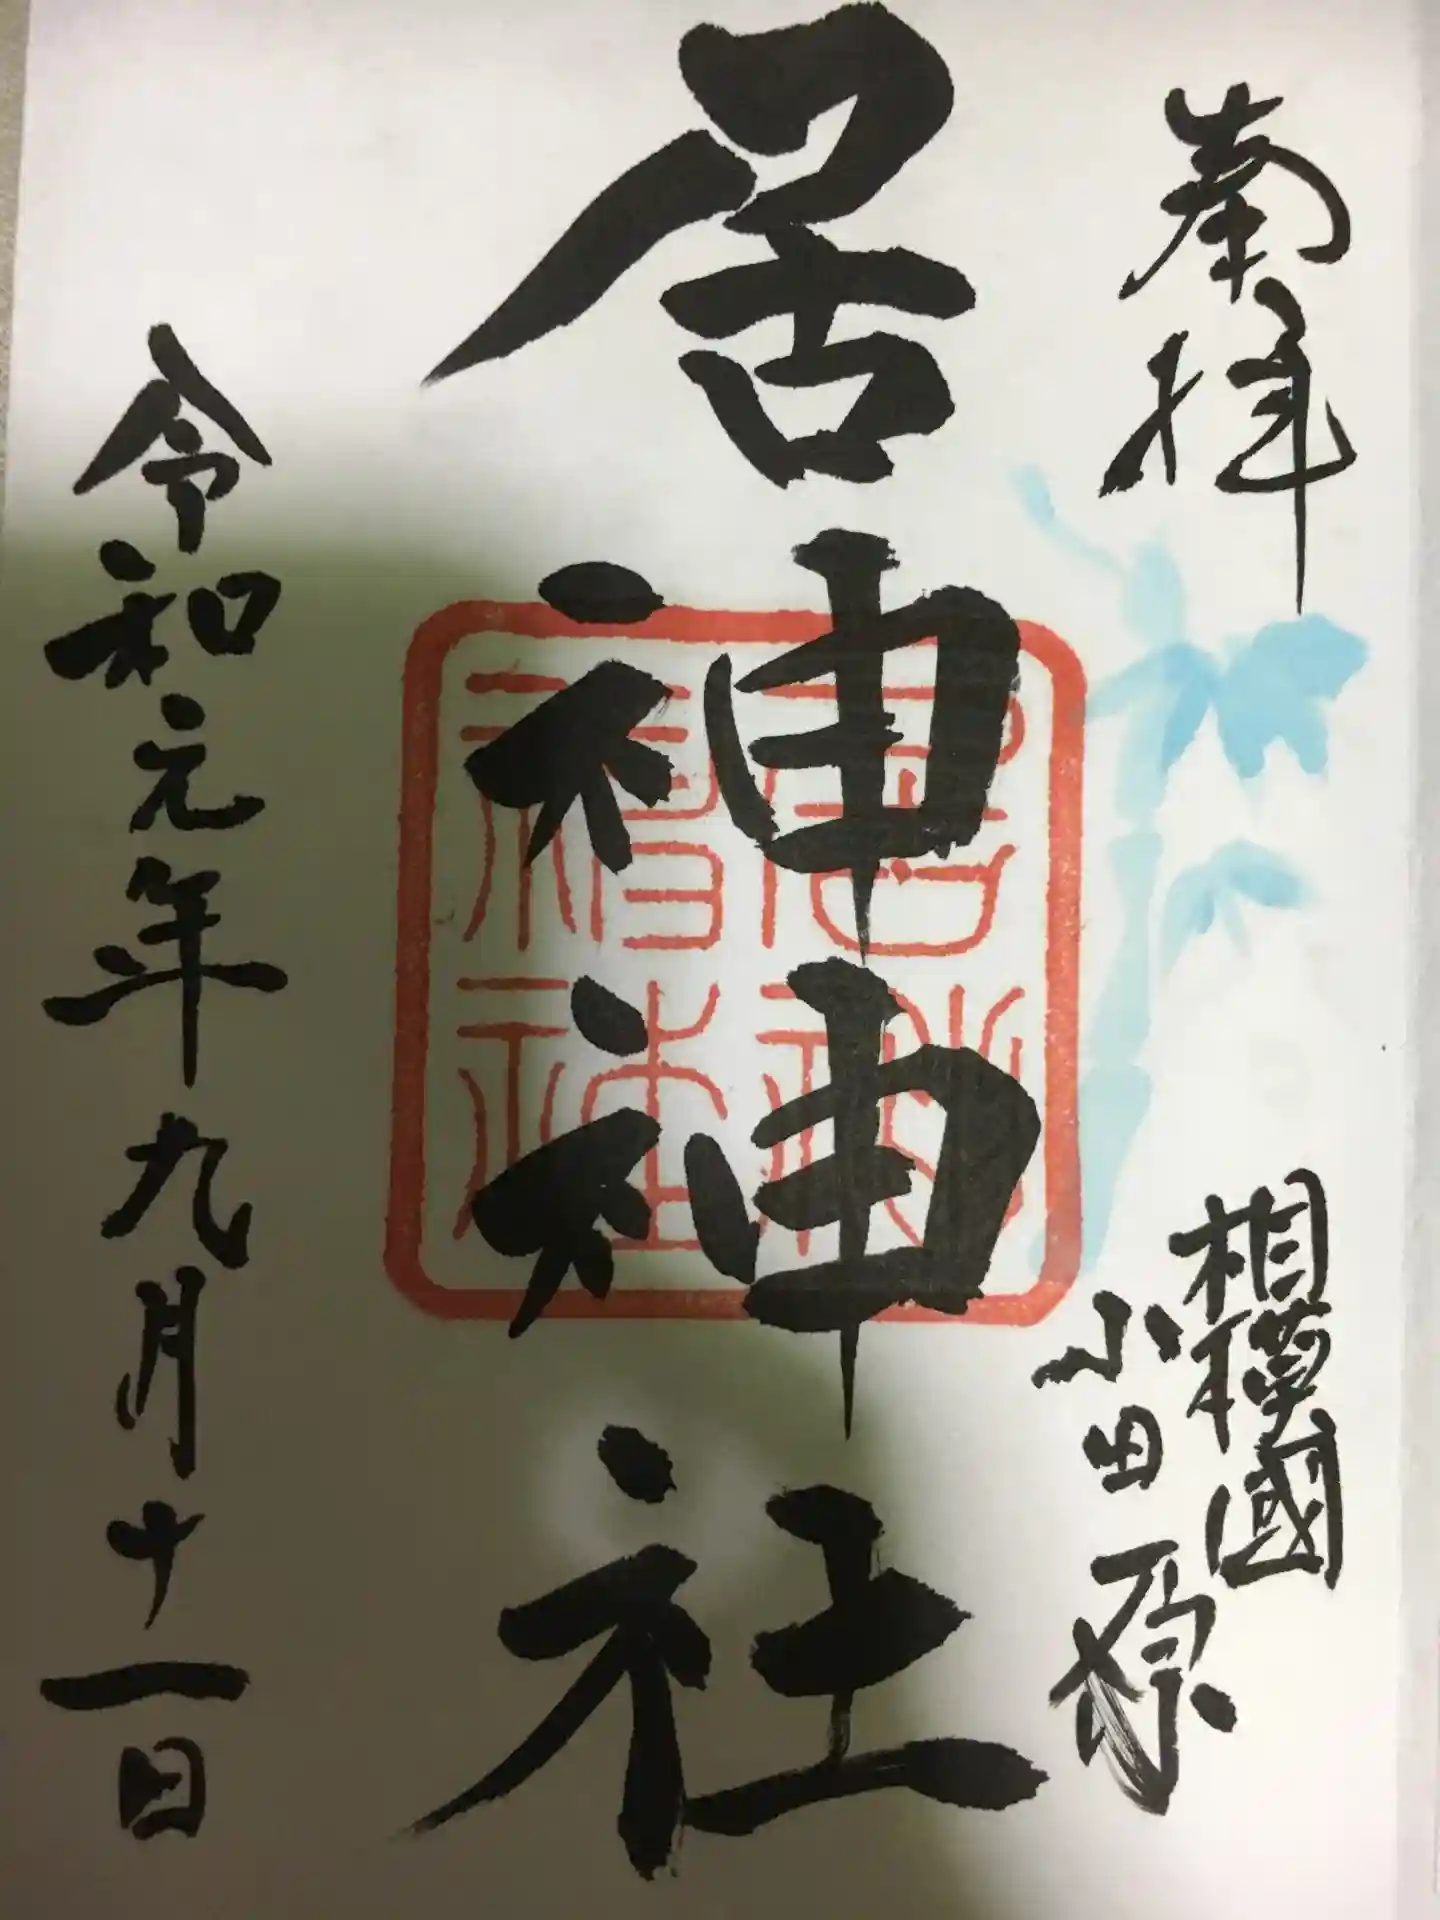 奉拝
相模國
小田原
居神神社
居神神社
令和元年九月十一日